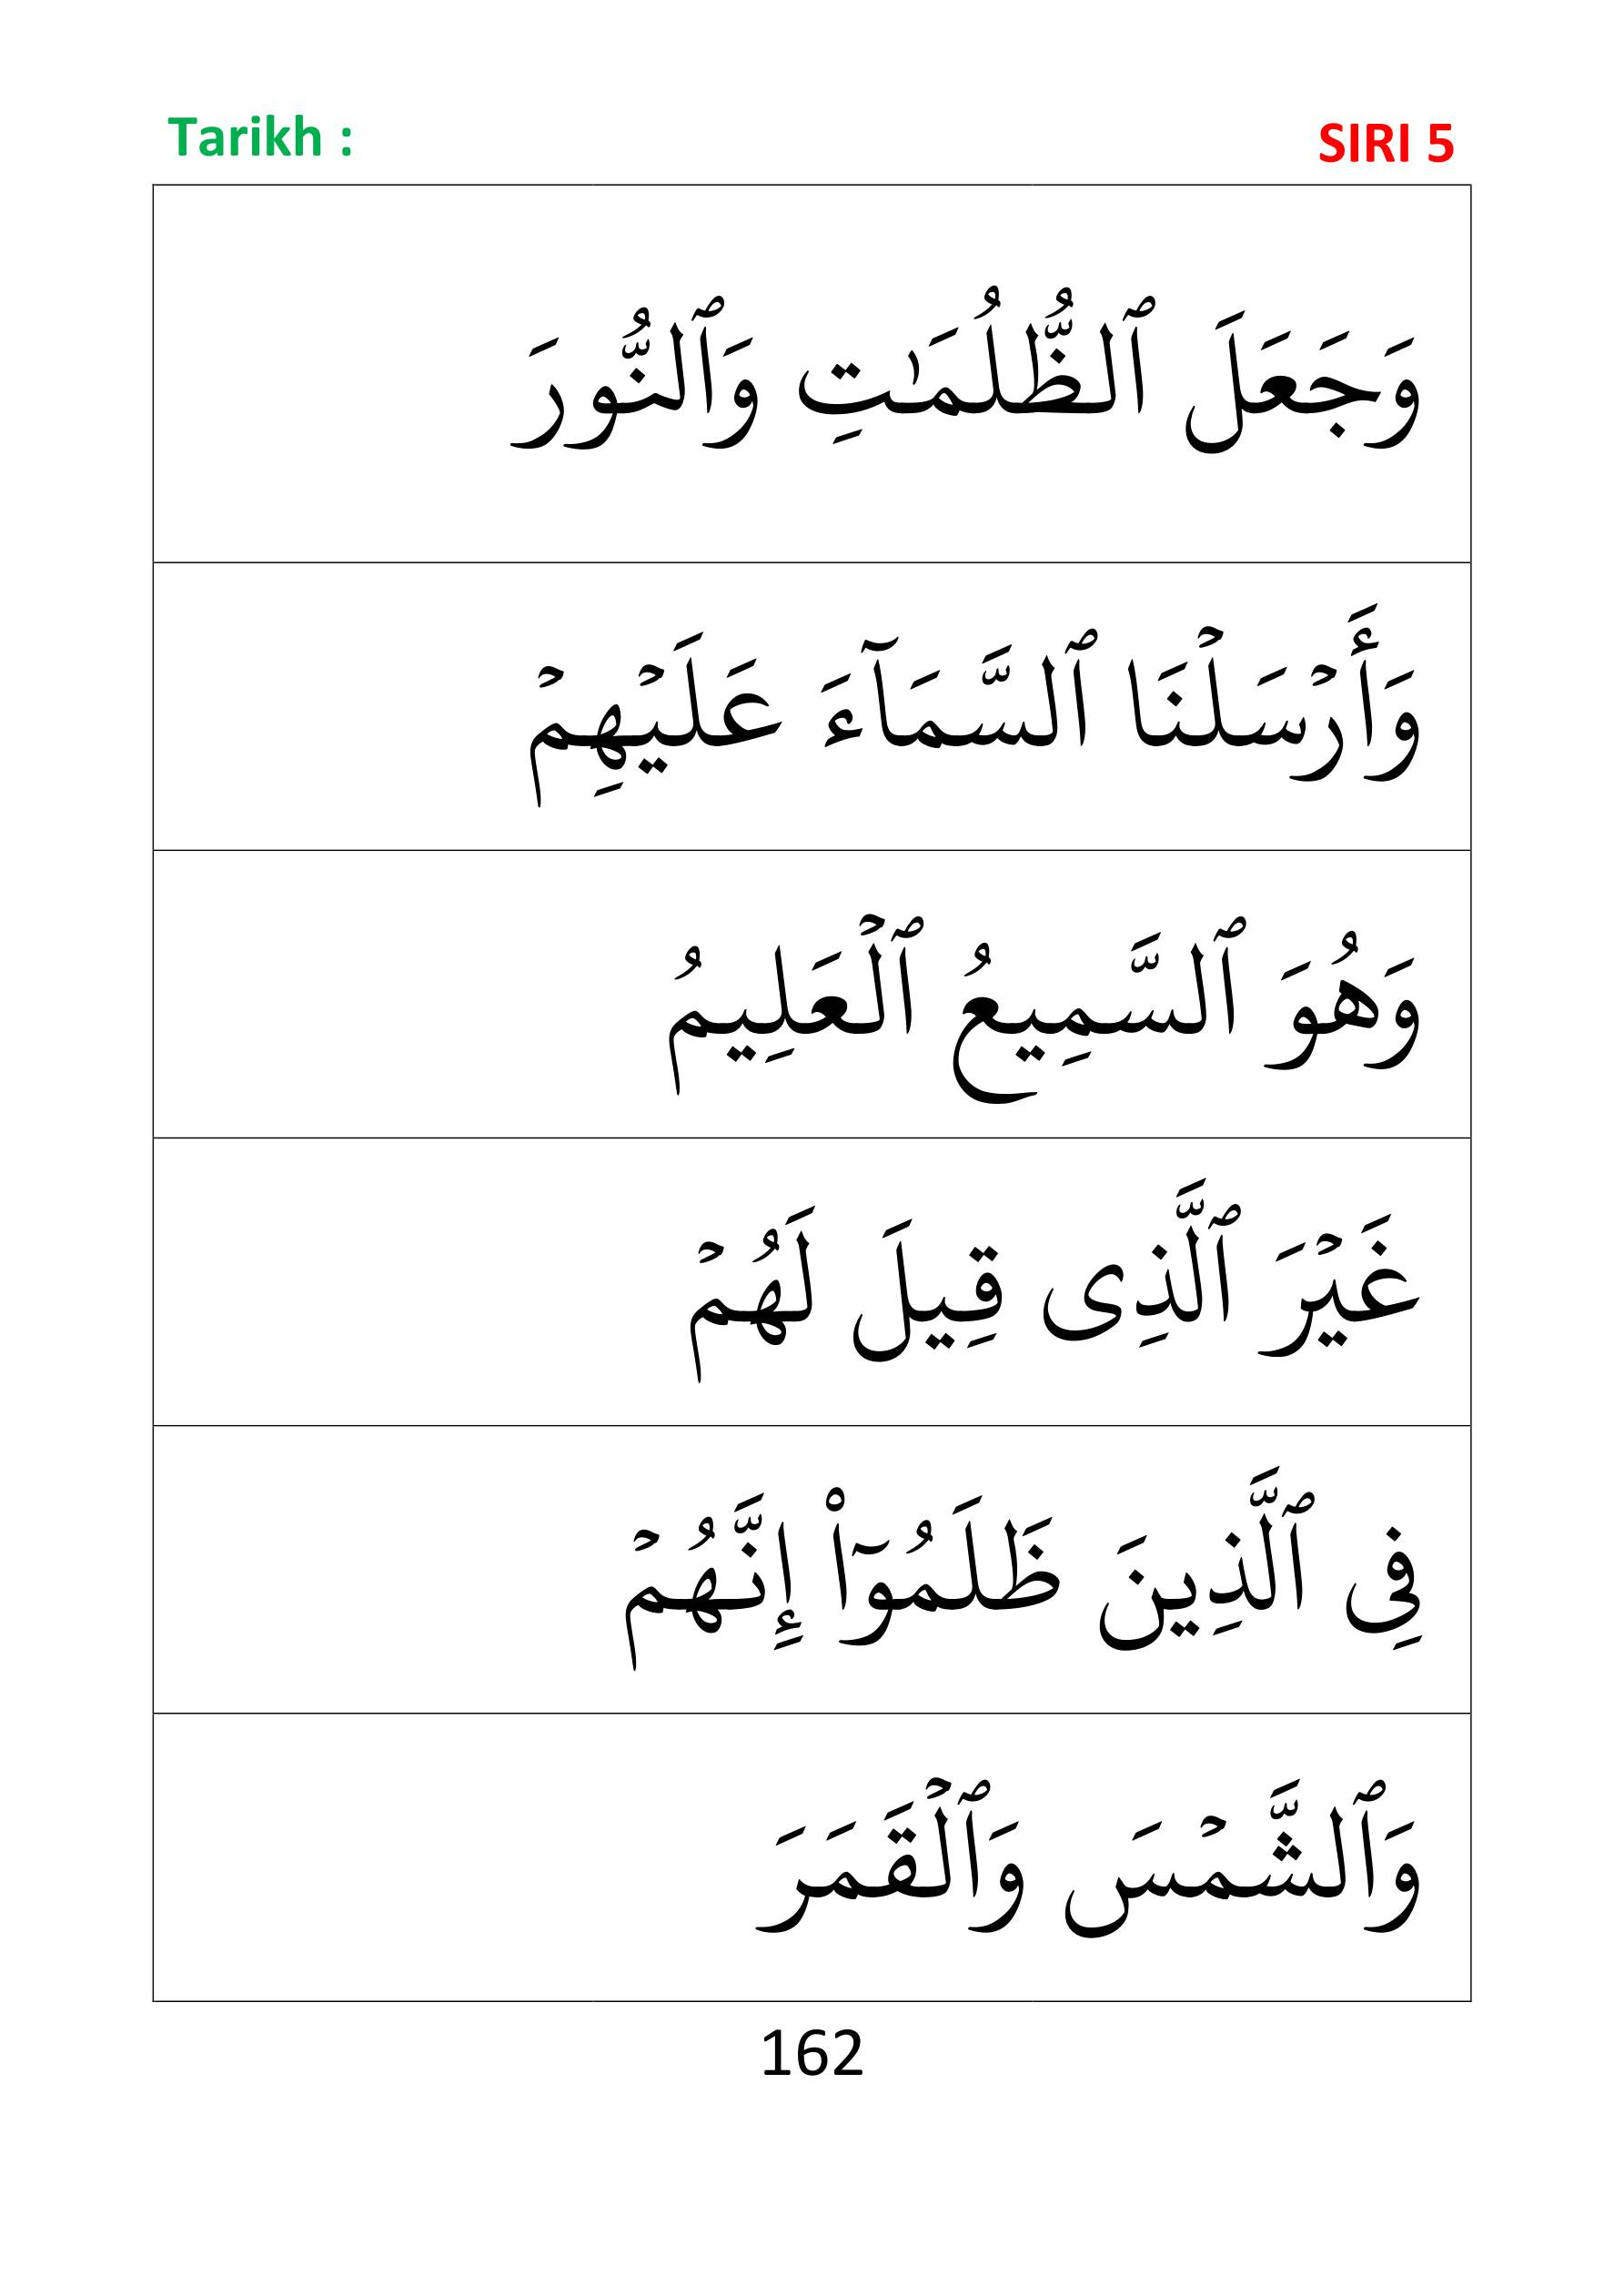 Tarikh :
SIRI 5
وَجَعَلَ ٱلظُّلُمَـٰتِ وَٱلنُّورَ
وَأَرۡسَلۡنَا ٱلسَّمَآءَ عَلَيۡهِمۡ
وَهُوَ ٱلسَّمِيعُ ٱلۡعَلِيمُ
غَيۡرَ ٱلَّذِى قِيلَ لَهُمۡ
فِى ٱلَّذِينَ ظَلَمُوٓاْ إِنَّهُمۡ
وَٱلشَّمۡسَ وَٱلۡقَمَرَ
162